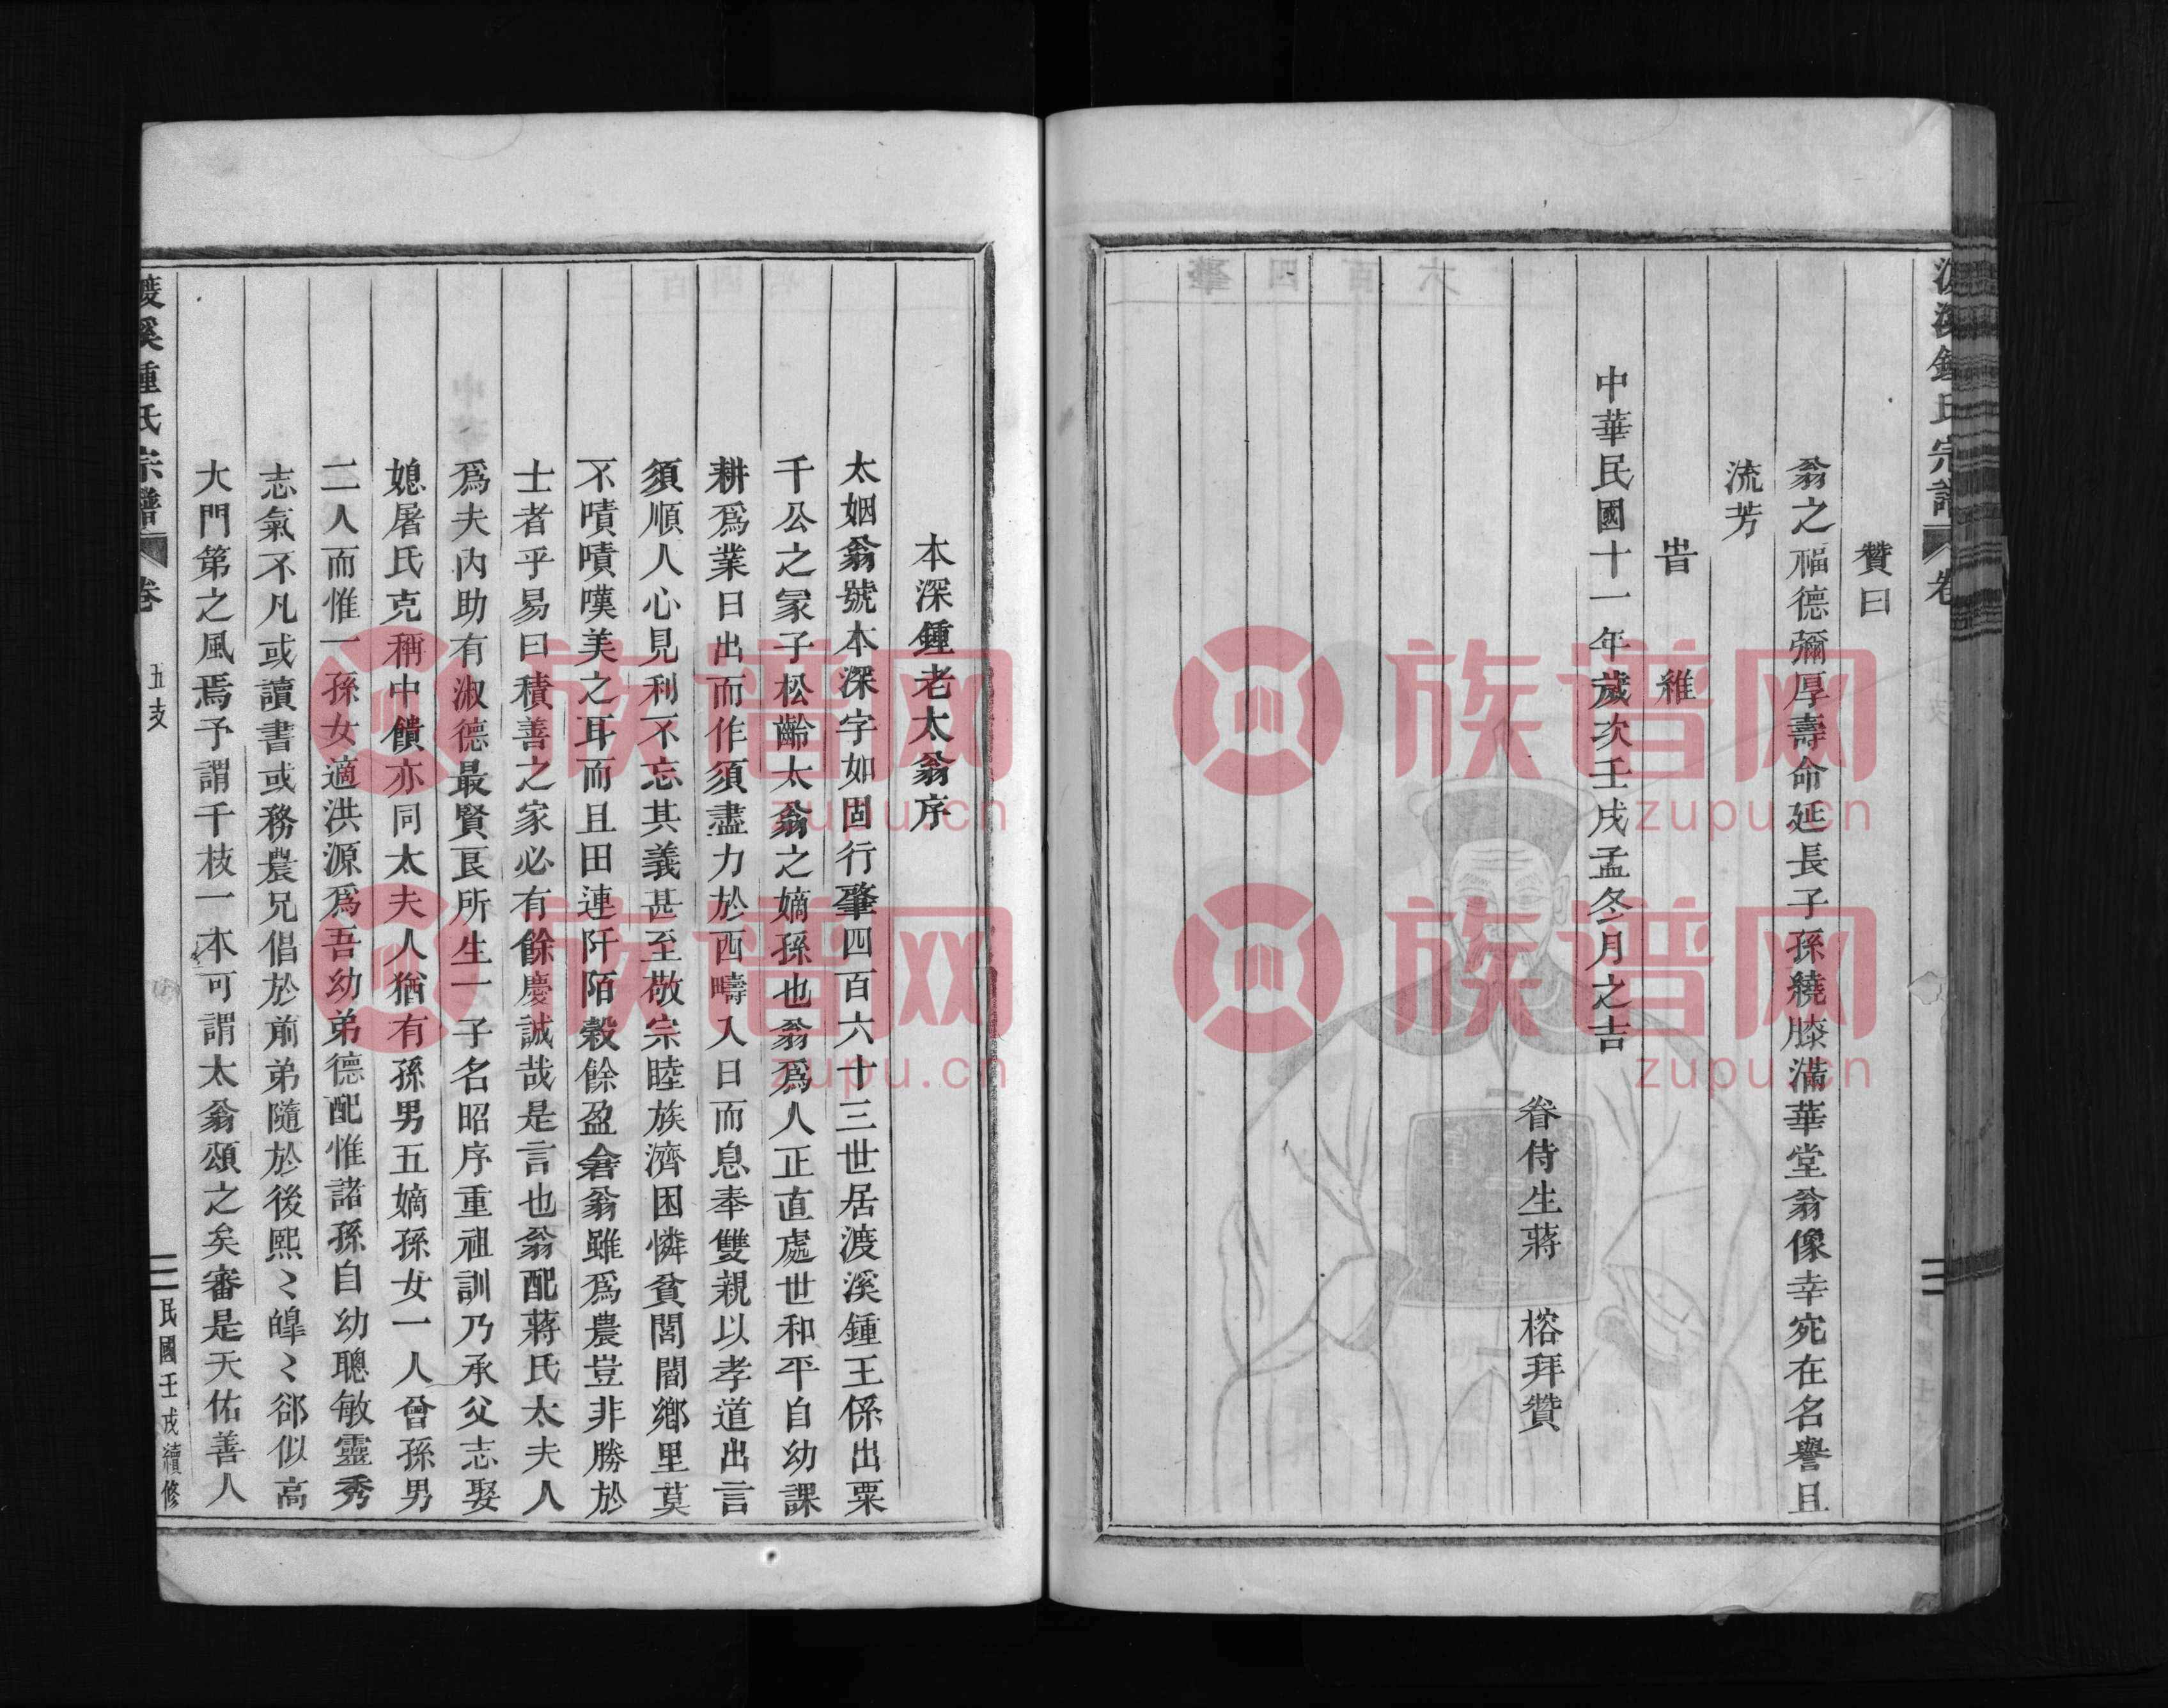 渡溪鍾氏宗譜
卷
贊曰
翁之福德彌厚壽命延長子孫繞膝滿華堂翁像幸宛在名譽且
流芳
旹 維
中華民國十一年歲次壬戌孟冬月之吉
眷侍生蔣 榕拜贊
本深鍾老太翁序
太姻翁號本深字如固行肇四百六十三世居渡溪鍾王係出粟
千公之冢子松齡太翁之嫡孫也翁爲人正直處世和平自幼課
耕爲業日出而作須盡力於西疇入日而息奉雙親以孝道出言
須順人心見利不忘其義甚至敬宗睦族濟困憐貧閭閻鄉里莫
不嘖嘖嘆美之耳而且田連阡陌穀餘盈倉翁雖爲農豈非勝於
士者乎易曰積善之家必有餘慶誠哉是言也翁配蔣氏太夫人
爲夫內助有淑德最賢良所生一子名昭序重祖訓乃承父志娶
媳屠氏克稱中饋亦同太夫人猶有孫男五嫡孫女一人曾孫男
二人而惟一孫女適洪源爲吾幼弟德配惟諸孫自幼聰敏靈秀
志氣不凡或讀書或務農兄倡於前弟隨於後熙〻皥〻郤似高
大門第之風焉予謂千枝一本可謂太翁頌之矣審是天佑善人
渡溪鍾氏宗譜
卷
五支
民國壬戌續修
族谱网
zupu.cn
族谱网
zupu.cn
族谱网
zupu.cn
族谱网
zupu.cn